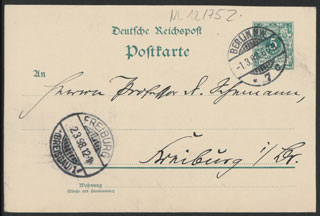 NL 12/1752
Deutsche Reichspost
Postkarte
BERLIN N.W.
-1.3.98.
* 7 c
An
Herrn Professor L. Schemann,
FREIBURG
2.3.98.12-1N
(BREISGAU)
Freiburg i/Br.
Wohnung
(Straße und Hausnummer)